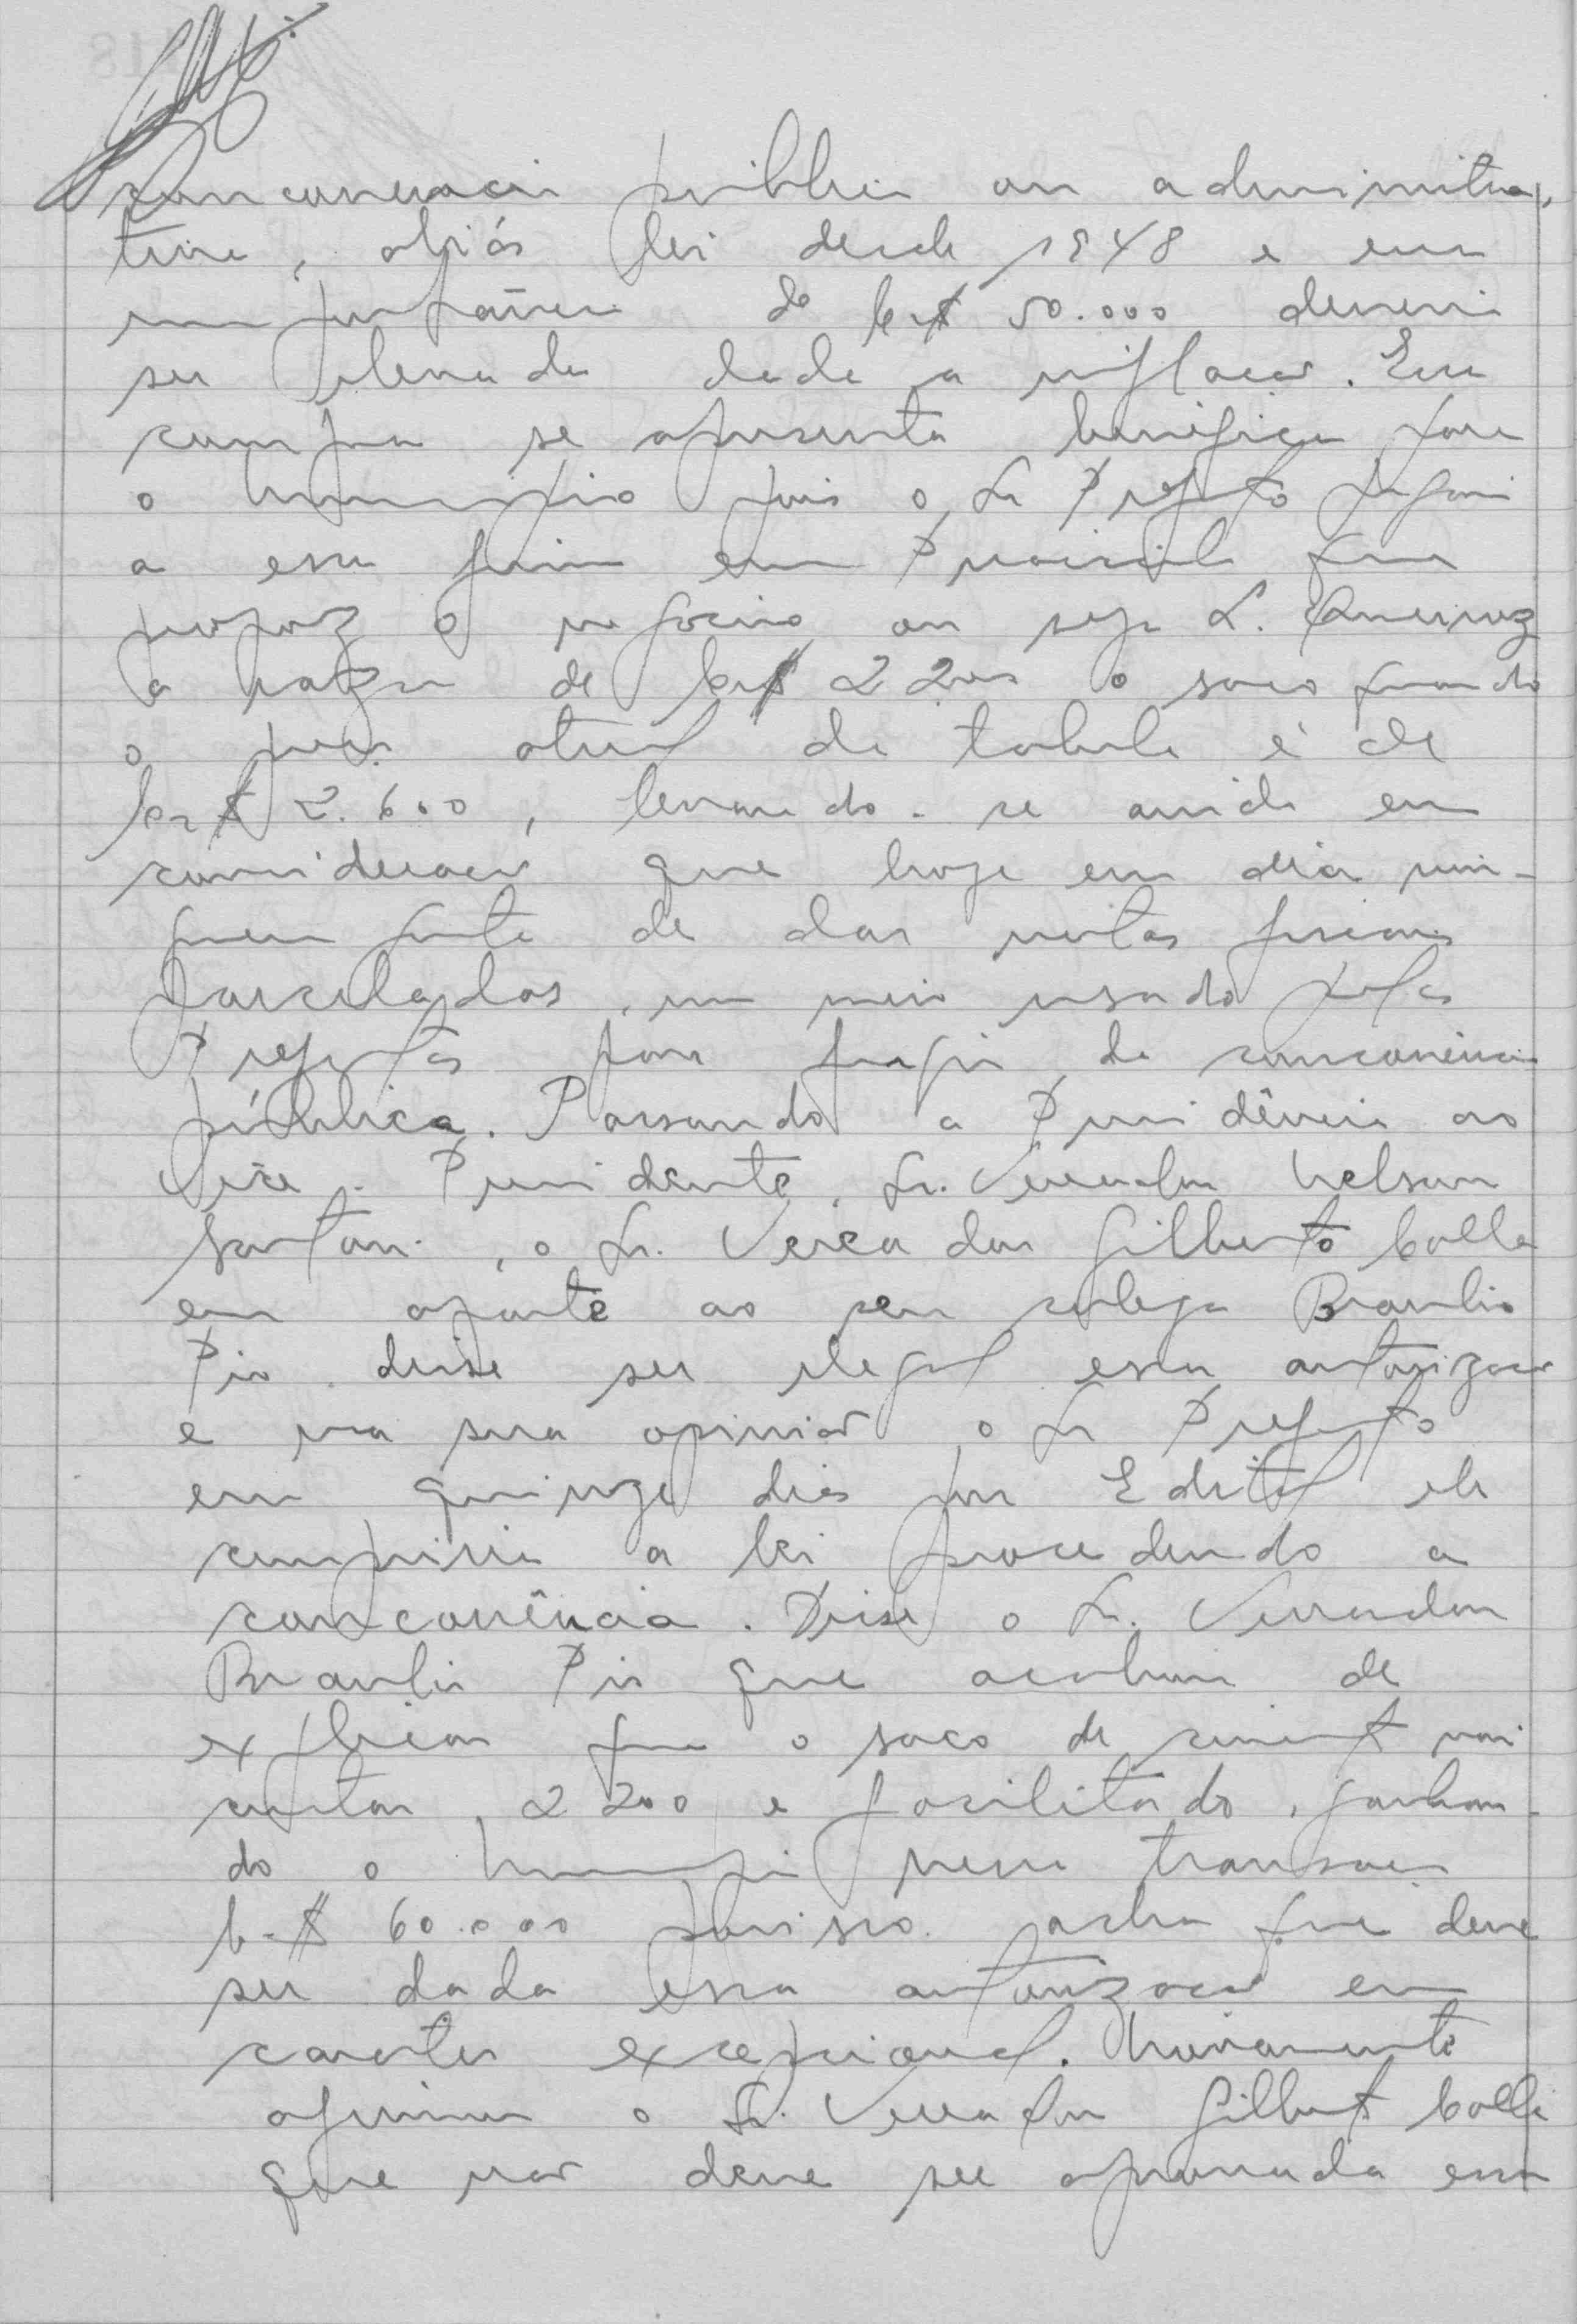 concorrencia publica ou administra-
tiva, aliás lei desde 1948 e em
importância de Cr$ 50.000 deveria
ser elevada dado a inflacao. Essa
compra se apresenta benefica para
o Municipio pois o Sr Prefeito pagaria
a essa firma em Piracicaba que
propoz o negocio ou seja L. Queiroz
a razao de Cr$ 2200 o saco quando
o preço atual da tabela é de
Cr$ 2.600, levando-se ainda em
consideracao que hoje em dia nin-
guem gosta de dar notas fiscais
parceladas, um meio usado pelos
Prefeitos para fugir da concorrência
pública. Passando a Presidência ao
Vice-Presidente, Sr. Vereador Nelson
, o Sr. Vereador Gilberto Colle
em aparte ao seu colega Braulio
Pio disse ser ilegal essa autorizacao
e na sua opiniao o Sr Prefeito
em quinze dias por Edital ele
cumpriria a lei procedendo a
concorrência. Disse o Sr. Vereador
Braulio Pio que acabara de
explicar que o saco de cimento vai
custar 2200 e facilitado, ganhan-
do o Municipio nessa transacao
Cr$ 60.000 por isso acha que deve
ser dada essa autorizacao em
carater excepcional. Novamente
afirmou o Sr. Vereador Gilberto Colle
que nao deve ser aprovada essa